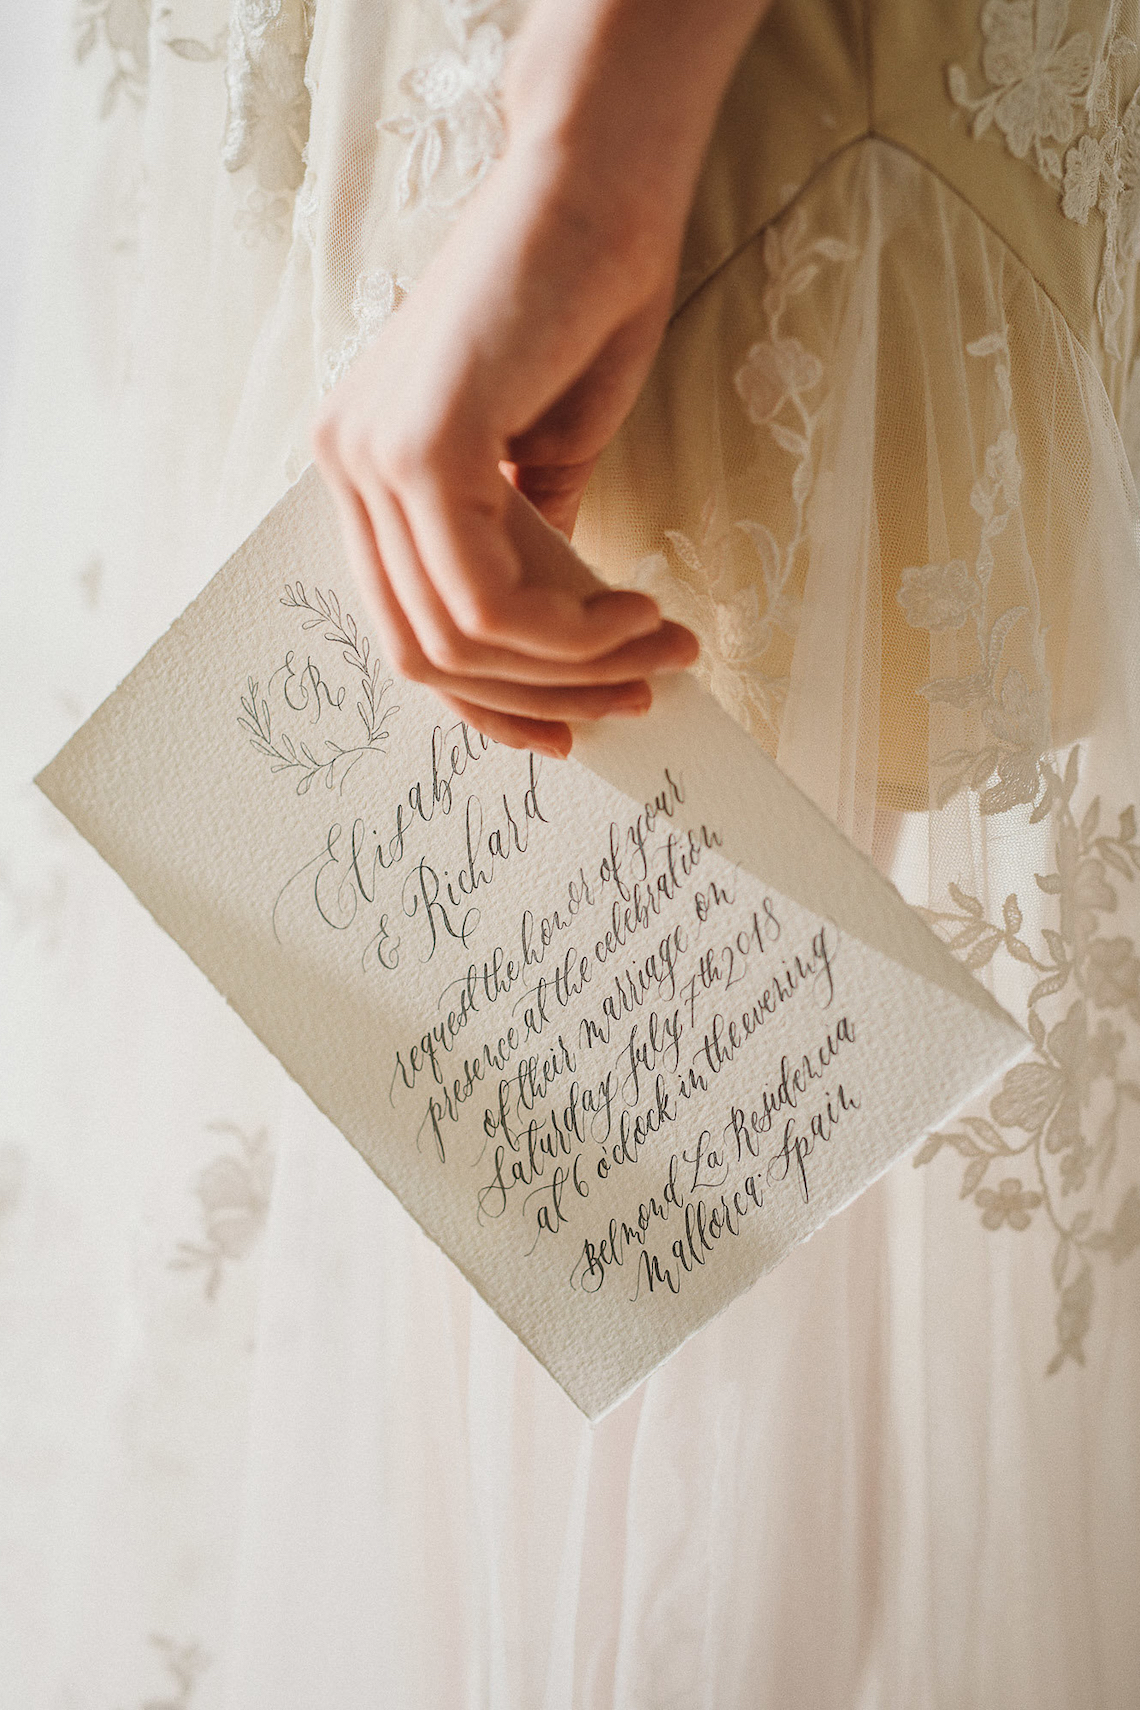 ER
Elisabeth
& Richard
request the honor of your
presence at the celebration
of their marriage on
Saturday July 7th 2018
at 6 o'clock in the evening
Belmond La Residencia
Mallorca. Spain